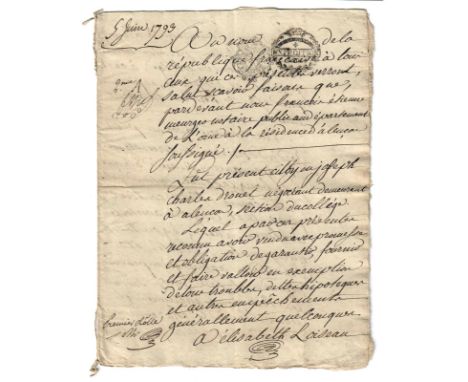 5 Juin 1793
Au nom de la
république française à tous
ceux qui ces présentes verront,
salut scavoir faisons que,
pardevant nous francois étienne
meurger notaire public au département
de l'orne à la résidence d'alençon
soussigné
fut présent citoyen joseph
charles drouet négociant demeurant
à alençon, section du collége
Lequel a par ces présentes
reconnu avoir vendu avec promesse
et obligation de garantir, fournir
et faire valloir en exemption
de tous troubles, dettes hipoteques
et autres empéchements
généralement quelconques
premier rôlle
A élisabeth Loiseau